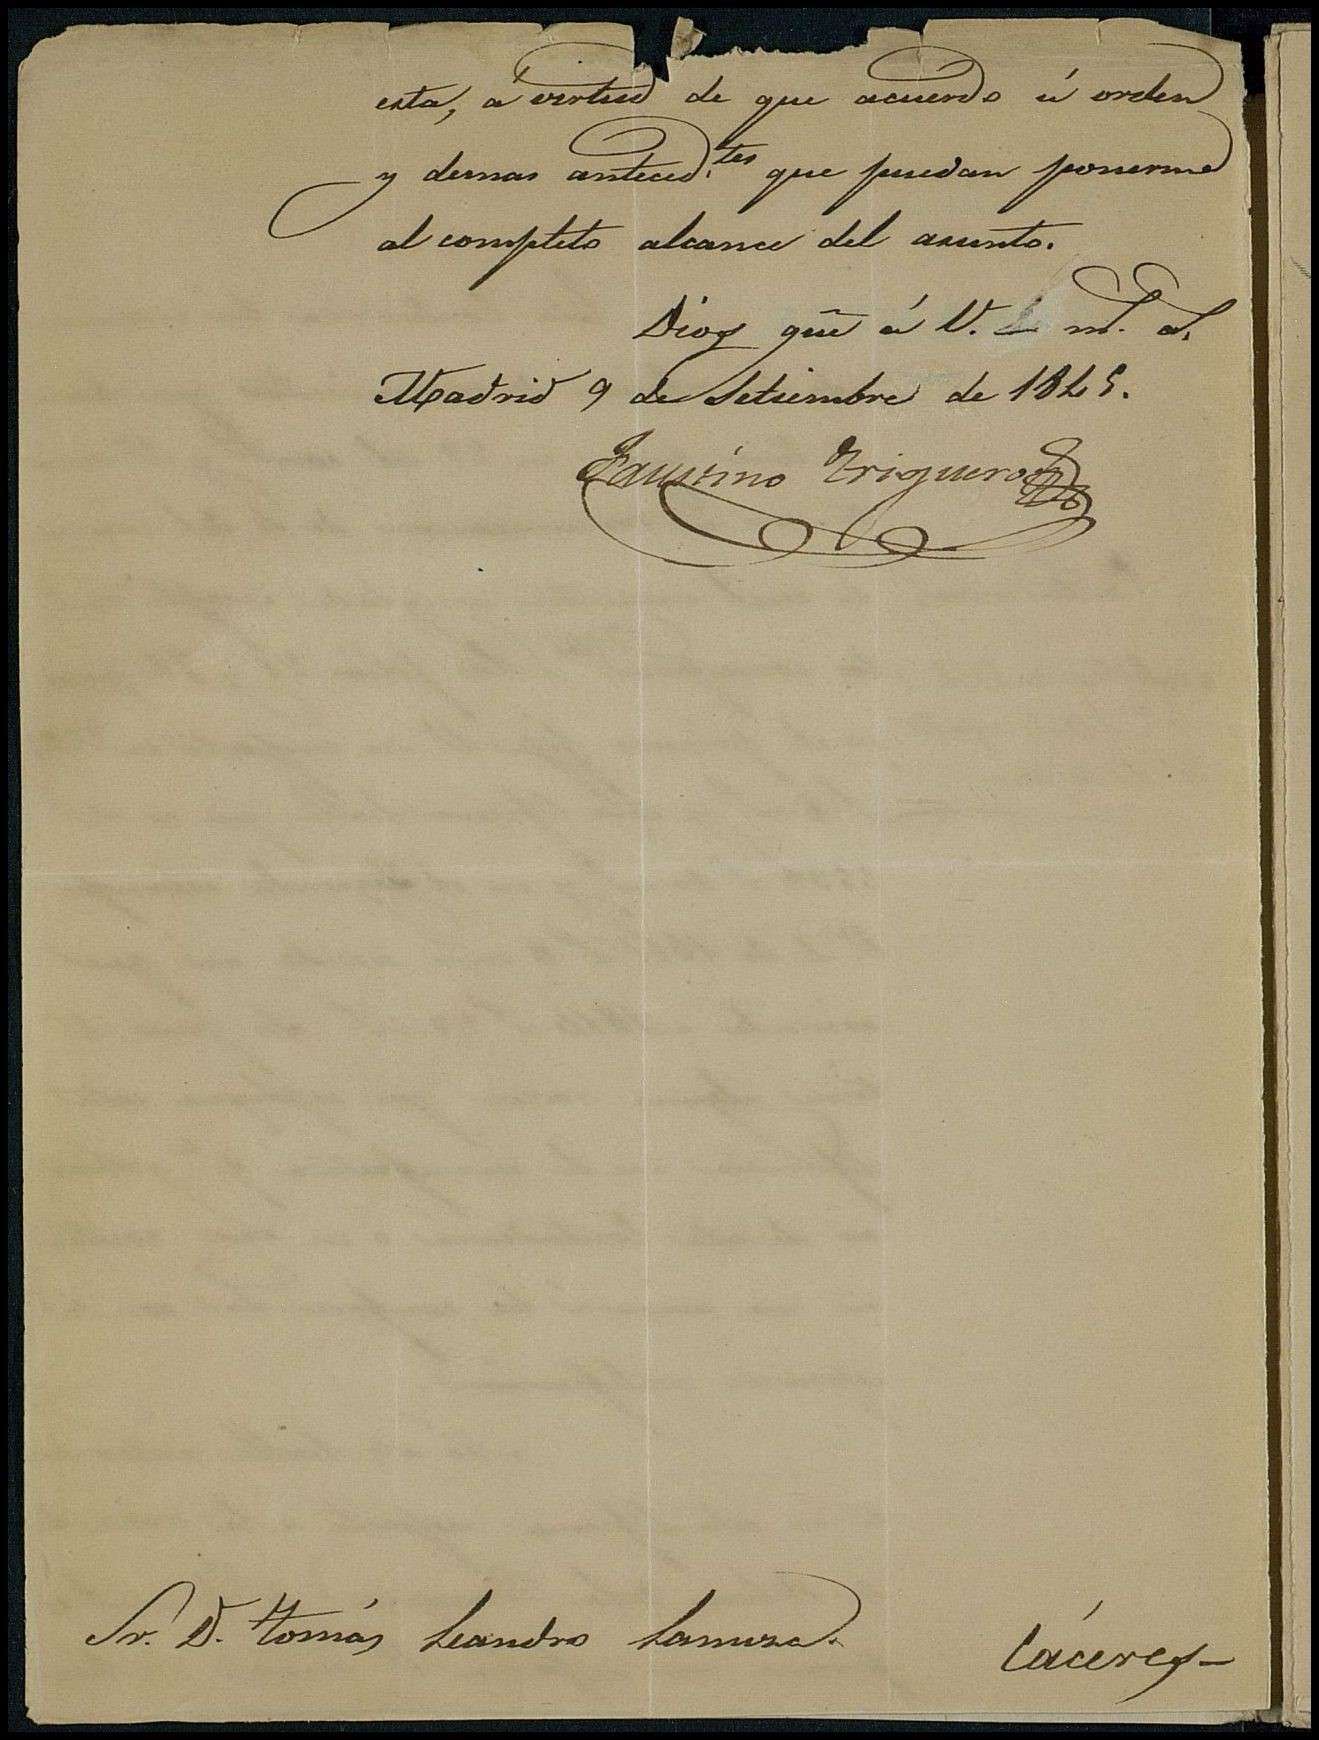 esta, á virtud de que acuerdo ú orden
y demas anteced.tes que puedan ponerme
al completo alcance del asunto.
Dios güe á V. m. a.
Madrid 9 de Setiembre de 1845.
Faustino Trigueros
Sr. D. Tomás Leandro Lanuza.
Cáceres-